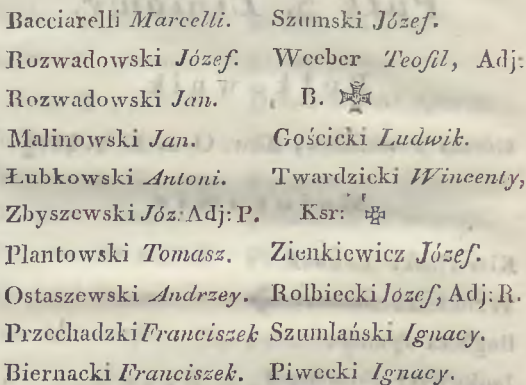 Bacciarelli Marcelli.
Rozwadowski Józef.
Rozwadowski Jan.
Malinowski Jan.
Łubkowski Antoni.
Zbyszewski Józ: Adj: P.
Plantowski Tomasz.
Ostaszewski Andrzey.
Przechadzki Franciszek
Biernacki Franciszek.
Szumski Józef.
Weeber Teofil, Adj:
B.
Gościcki Ludwik.
Twardzicki Wincenty,
Ksr:
Zienkiewicz Józef.
Rolbiecki Józef, Adj: R.
Szumlański Ignacy.
Piwecki Ignacy.